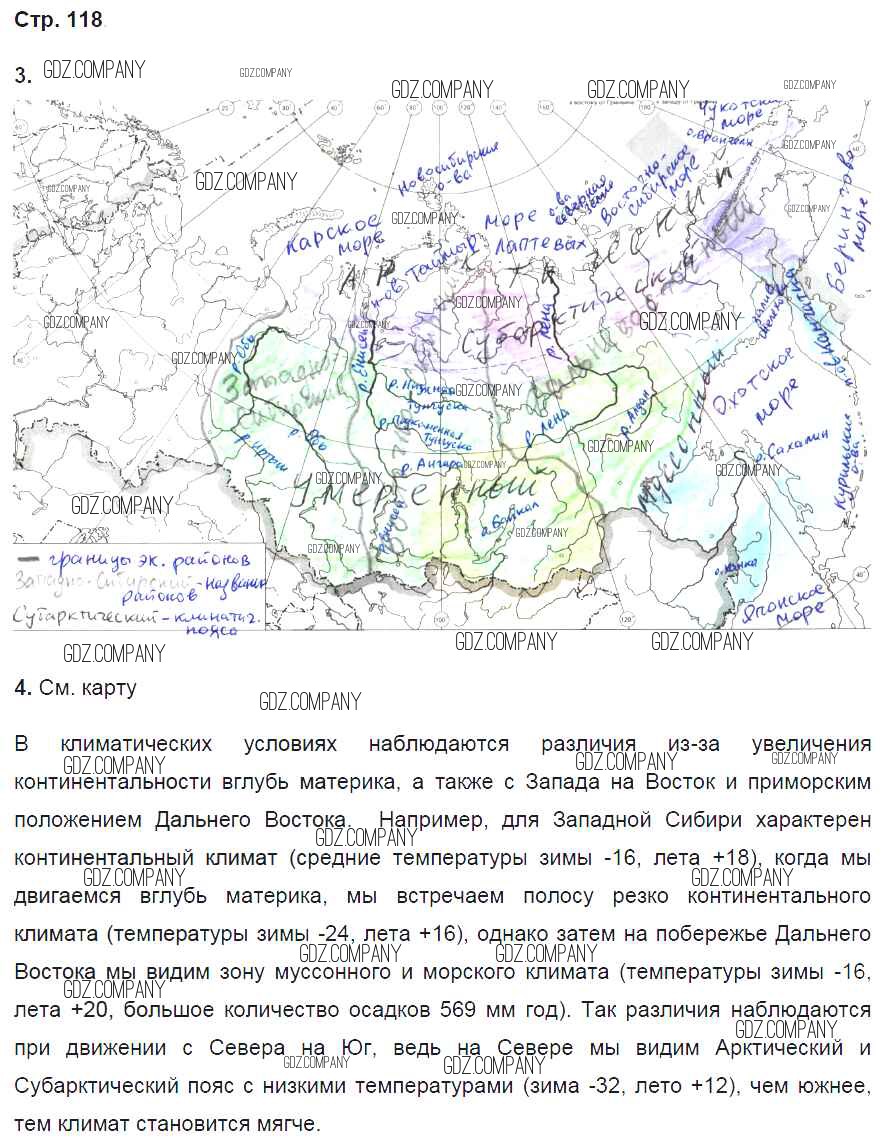 Стр. 118
3.
GDZ.COMPANY
GDZ.COMPANY
GDZ.COMPANY
GDZ.COMPANY
GDZ.COMPANY
Чукотское море
о. Врангеля
Новосибирские о-ва
о-ва Северная Земля
Восточно-Сибирское море
Берингово море
Карское море
море Лаптевых
п-ов Таймыр
Субарктический
Дальневосточный
Западно-Сибирский
р. Обь
р. Енисей
р. Лена
р. Нижняя Тунгуска
р. Подкаменная Тунгуска
р. Ангара
р. Лена
р. Алдан
р. Иртыш
р. Обь
Охотское море
о. Сахалин
Курильские о-ва
Муссонный
Умеренный
о. Байкал
о. Ханка
Японское море
— границы эк. районов
Западно-Сибирский - названия районов
Субарктический - климатич. пояса
GDZ.COMPANY
GDZ.COMPANY
GDZ.COMPANY
4. См. карту
GDZ.COMPANY
В климатических условиях наблюдаются различия из-за увеличения
континентальности вглубь материка, а также с Запада на Восток и приморским
положением Дальнего Востока. Например, для Западной Сибири характерен
континентальный климат (средние температуры зимы -16, лета +18), когда мы
двигаемся вглубь материка, мы встречаем полосу резко континентального
климата (температуры зимы -24, лета +16), однако затем на побережье Дальнего
Востока мы видим зону муссонного и морского климата (температуры зимы -16,
лета +20, большое количество осадков 569 мм год). Так различия наблюдаются
при движении с Севера на Юг, ведь на Севере мы видим Арктический и
Субарктический пояс с низкими температурами (зима -32, лето +12), чем южнее,
тем климат становится мягче.